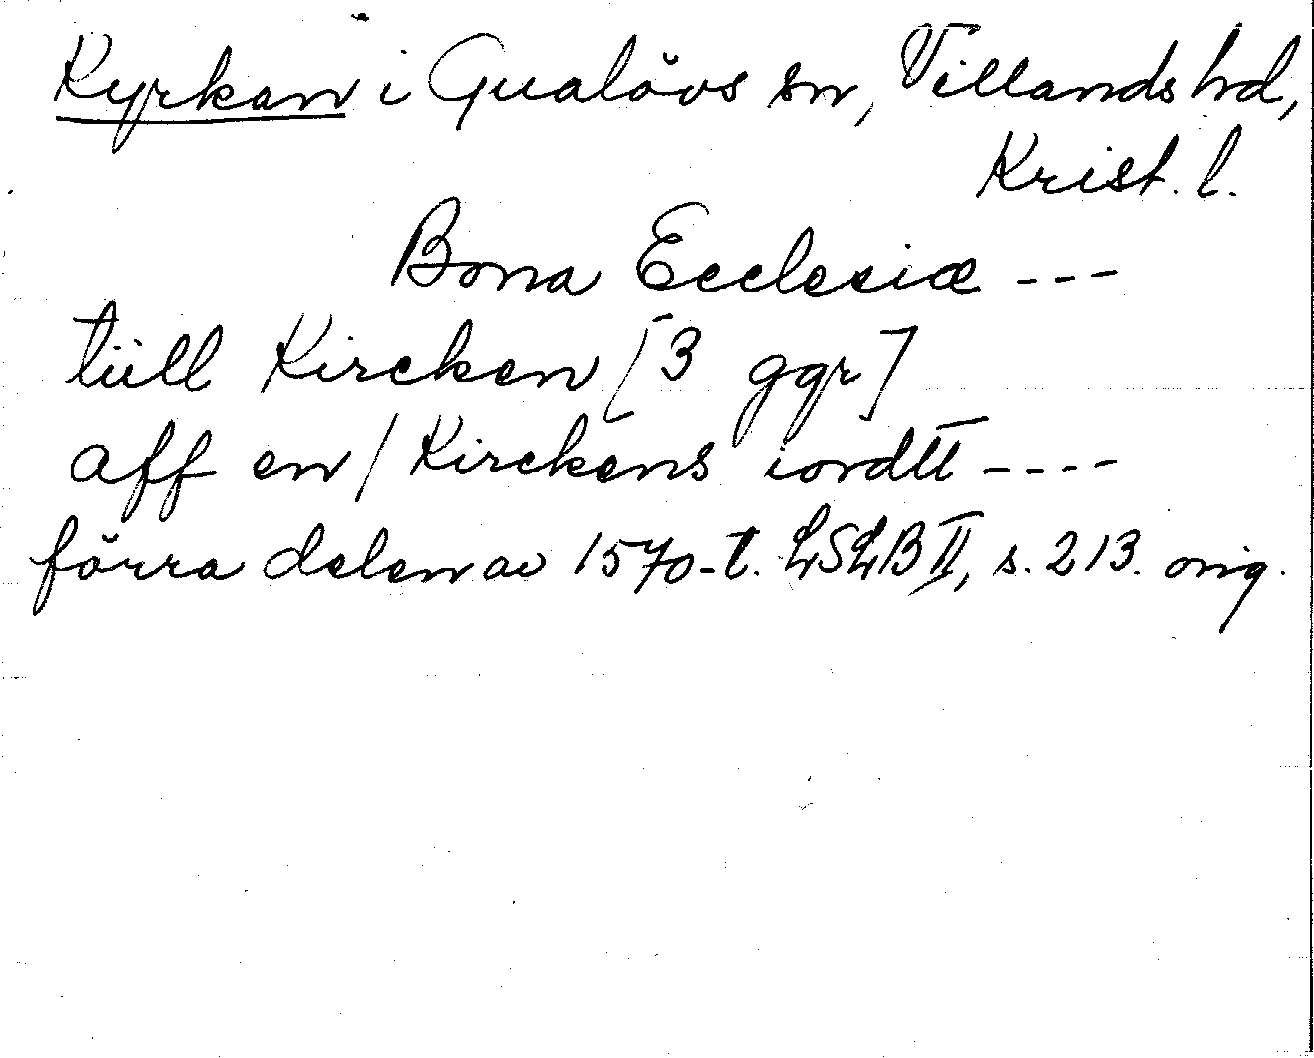 Kyrkan i Gualövs sn, Villands hd,
Krist. l.
Bona Ecclesiæ ---
tiill Kircken [3 ggr]
aff en / Kirckens iordtt ----
förra delen av 1570-t. LSLB II, s. 213. orig.